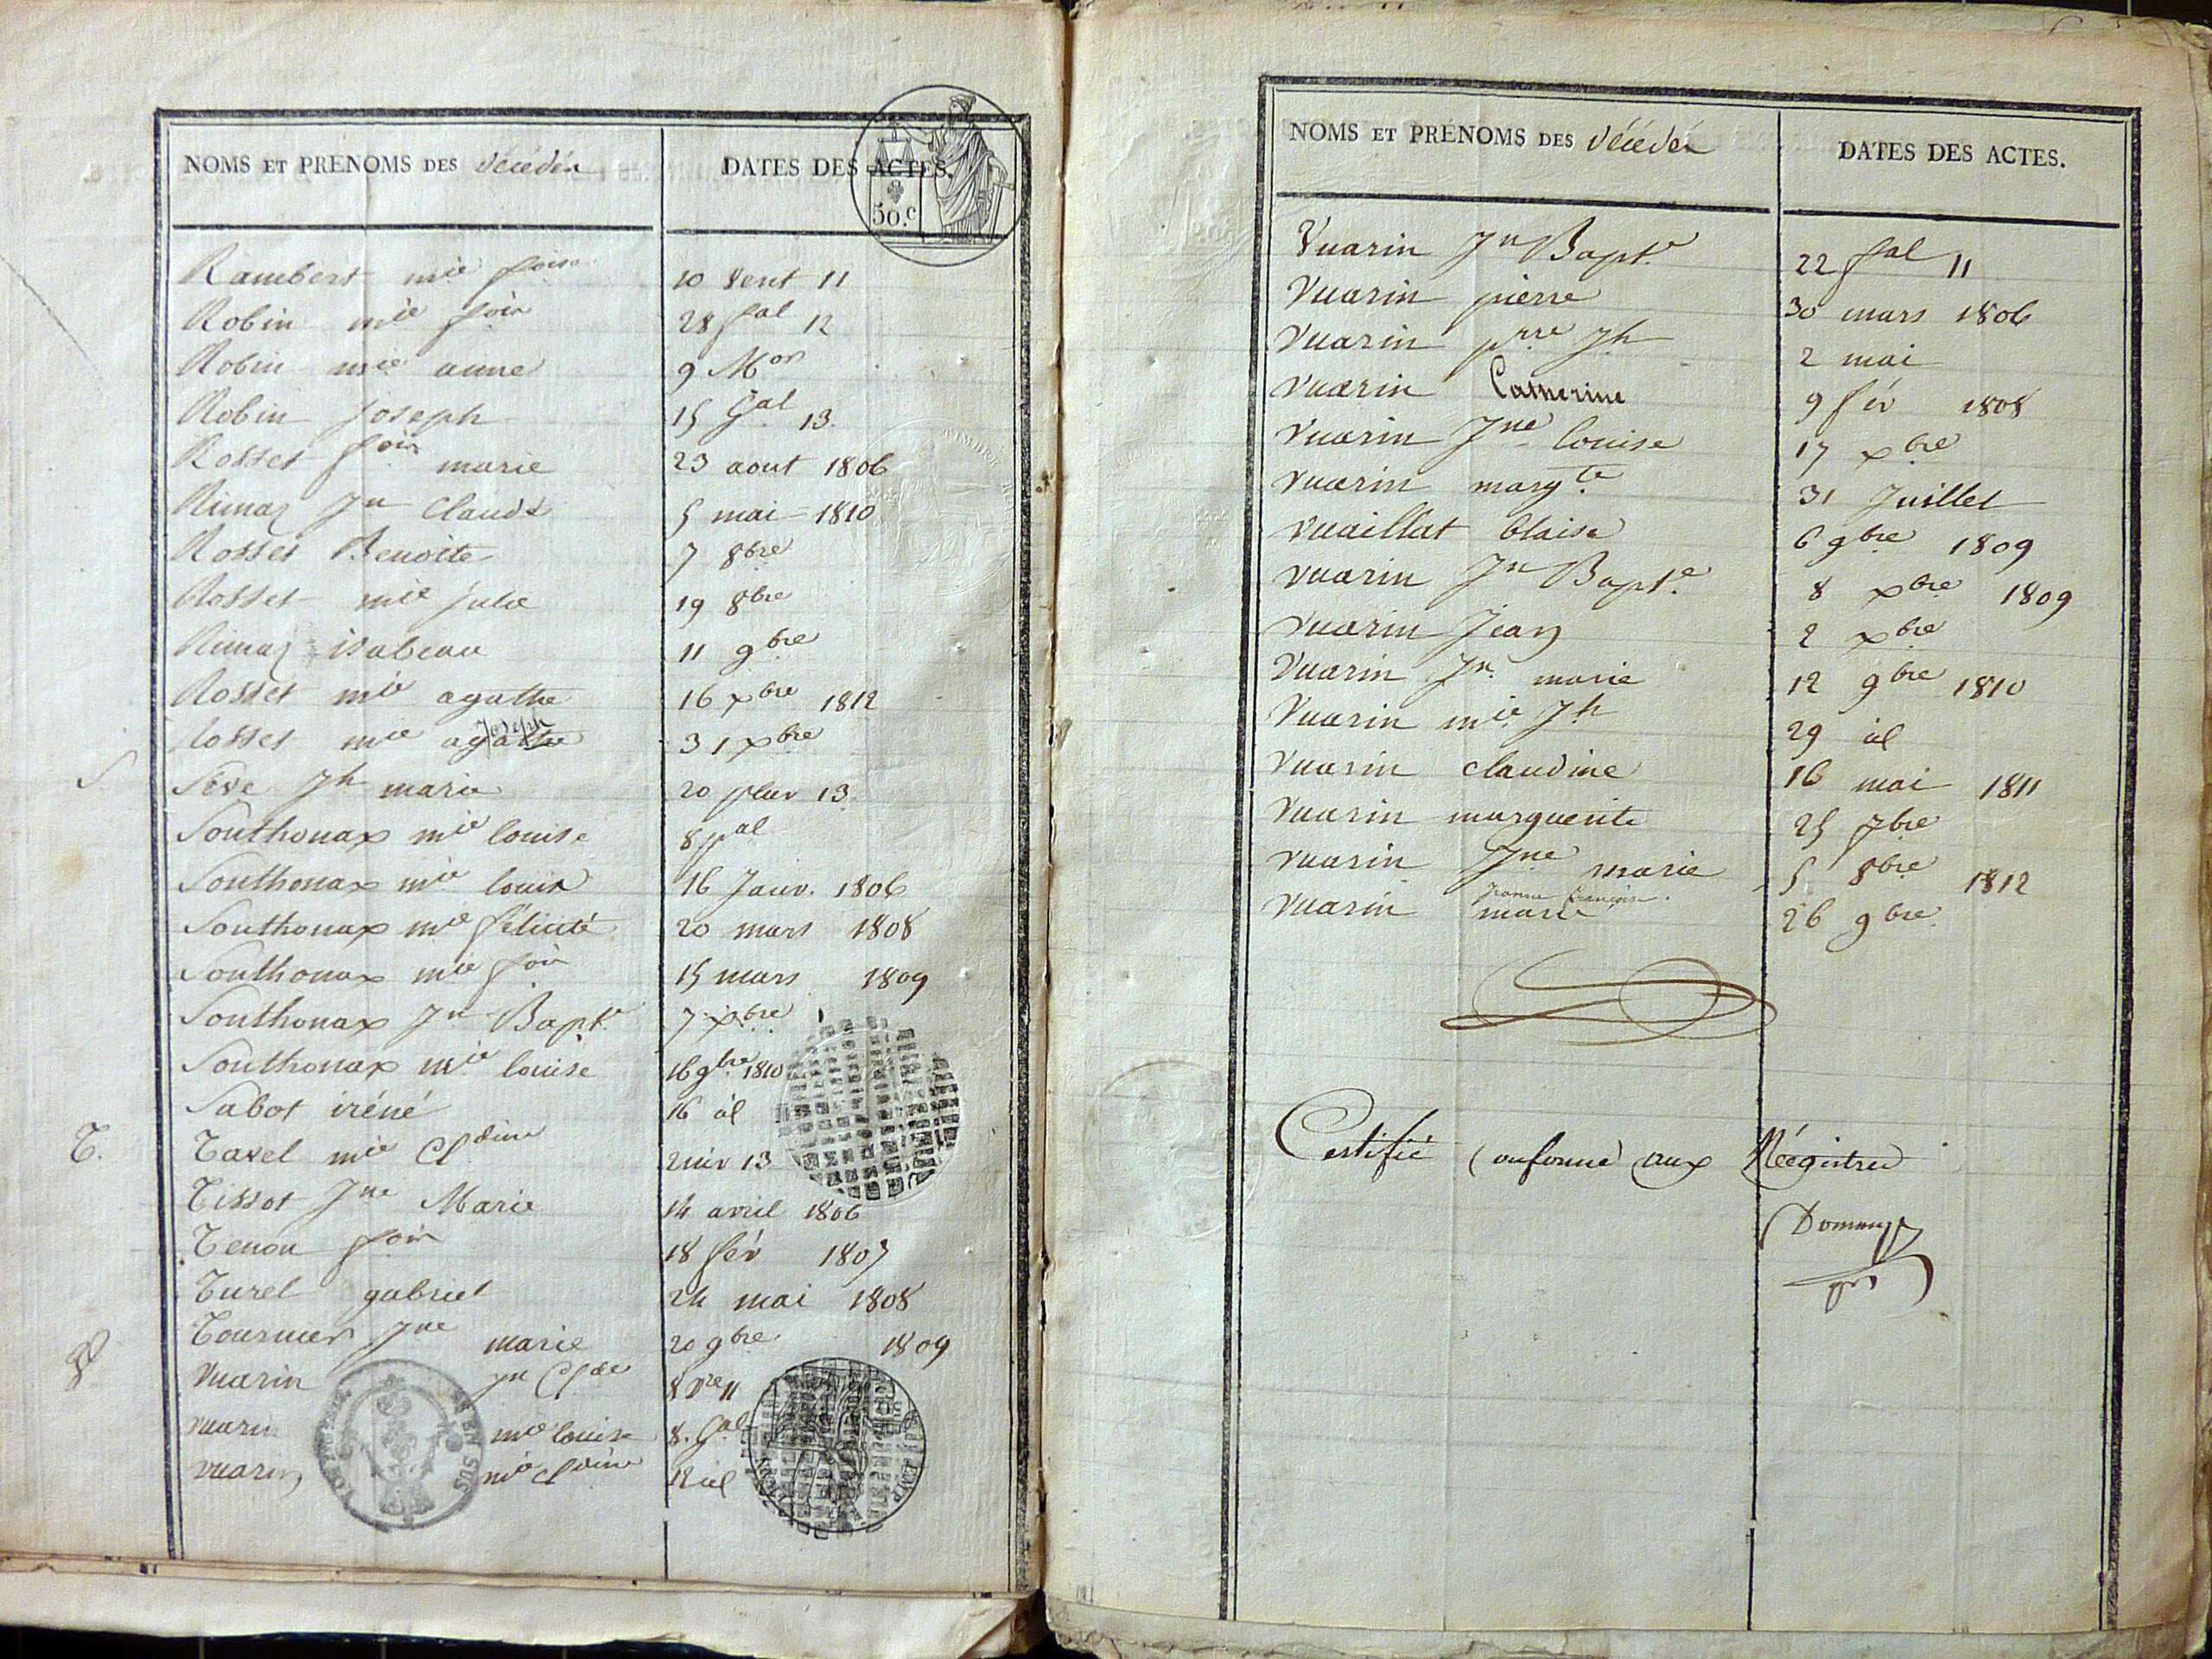 NOMS ET PRENOMS DES décédés DATES DES ACTES.
50.c
Rambert mie foise 10 vent 11
Robin mie foise 28 fal 12
Robin mie anne 9 Mor
Robin joseph 15 Gal 13.
Rosset fois marie 23 aout 1806
Rimaz Jn Claude 5 mai 1810
Rosset Benoite 7 8bre
Rosset mie julie 19 8bre
Rimaz isabeau 11 9bre
Rosset mie agathe 16 xbre 1812
Joseph
Rosset mie agathe 31 xbre
S Seve Jh marie 20 pluv 13
Southonax mie louise 8 pal
Southonax mie louise 16 Janv. 1806
Southonax mie félicité 20 mars 1808
Southonax mie foise 15 mars 1809
Southonax Jn Bapte 7 xbre
Southonax mie louise 16 9bre 1810
Sabot iréné 16 id
T. Tavel mie Cldine 2 niv 13
Tissot Jne Marie 14 avril 1806
Tenon fois 18 fév 1807
Turel gabriel 24 mai 1808
Tournier Jne marie 20 9bre 1809
V Vuarin Jn Clde 8 vre 11
vuarin mie louise 8. Gal
vuarin mie cldine 12 id
NOMS ET PRENOMS DES décédés DATES DES ACTES.
Vuarin Jn Bapte 22 fal 11
Vuarin pierre 30 mars 1806
Vuarin prre Jh 2 mai
vuarin Catherine 9 fév 1808
Vuarin Jne louise 17 xbre
vuarin margte 31 Juillet
vuaillat blaise 6 9bre 1809
vuarin Jn Bapte 8 xbre 1809
vuarin Jean 2 xbre
Vuarin Jn marie 12 9bre 1810
Vuarin mie Jh 29 id
Vuarin claudine 16 mai 1811
Vuarin marguerite 25 7bre
vuarin Jne marie 5 8bre 1812
Jeanne françoise.
vuarin marie 26 9bre
Certifié conforme aux Régistres